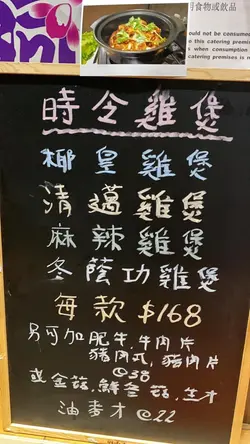 可食物或飲品
ould not be consumed
e this catering premises
s when consumption
catering premises is n
時令雞煲
椰皇雞煲
清邁雞煲
麻辣雞煲
冬蔭功雞煲
每款 $168
另可加肥牛,牛肉片
豬肉丸,豬肉片
@38
或金菇,鮮冬菇,生才
油麥才 @22